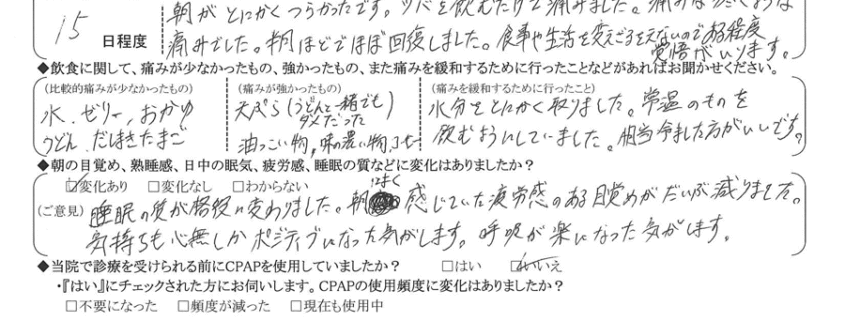 朝がとにかくつらかったです。ツバを飲むだけで痛みました。痛みは
15
日程度
痛みでした。 ほどでほぼ回復しました。食事や生活を変えざるをえないのである程度
覚悟がいります。
◆飲食に関して、痛みが少なかったもの、強かったもの、また痛みを緩和するために行ったことなどがあればお聞かせください。
(比較的痛みが少なかったもの) (痛みが強かったもの) (痛みを緩和するために行ったこと)
水、ゼリー、おかゆ
うどん、だしまきたまご
天ぷら(うどんと一緒でも
ダメだった)
油っこい物、味の濃い物
水分をとにかく取りました。常温のものを
飲むようにしていました。相当冷ました方がいいです。
◆朝の目覚め、熟睡感、日中の眠気、疲労感、睡眠の質などに変化はありましたか?
☑変化あり □変化なし □わからない
(ご意見)
睡眠の質が格段に変わりました。朝 感じていた疲労感のある目覚めがだいぶ減りました。
気持ちも心無しかポジティブになった気がします。呼吸が楽になった気がします。
◆当院で診療を受けられる前にCPAPを使用していましたか? □はい ☑いいえ
・『はい』にチェックされた方にお伺いします。CPAPの使用頻度に変化はありましたか?
□不要になった □頻度が減った □現在も使用中